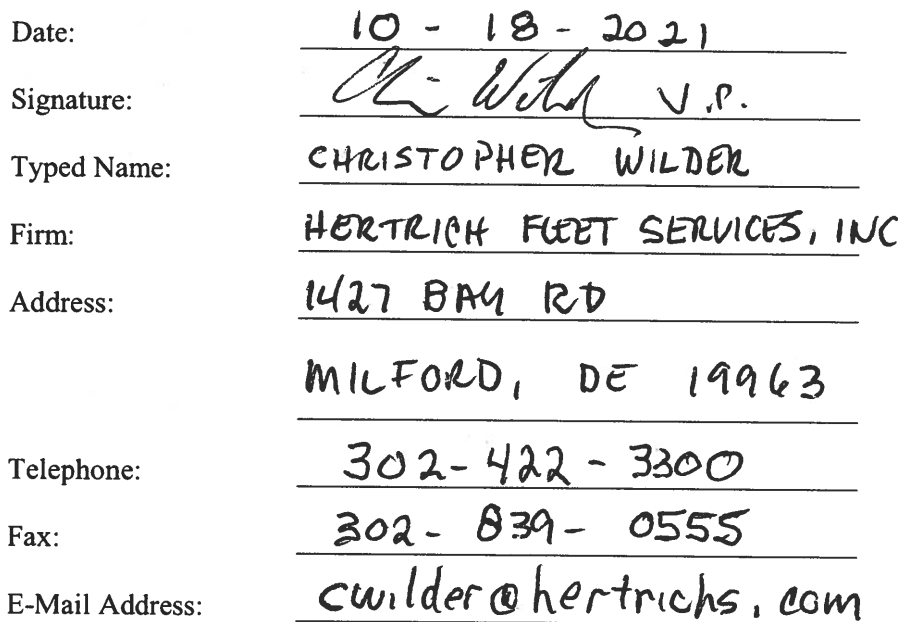 Date: 10 - 18 - 2021
Signature: Chris Wilder V.P.
Typed Name: CHRISTOPHER WILDER
Firm: HERTRICH FLEET SERVICES, INC
Address: 1427 BAY RD
MILFORD, DE 19963
Telephone: 302-422-3300
Fax: 302-839-0555
E-Mail Address: cwilder@hertrichs.com